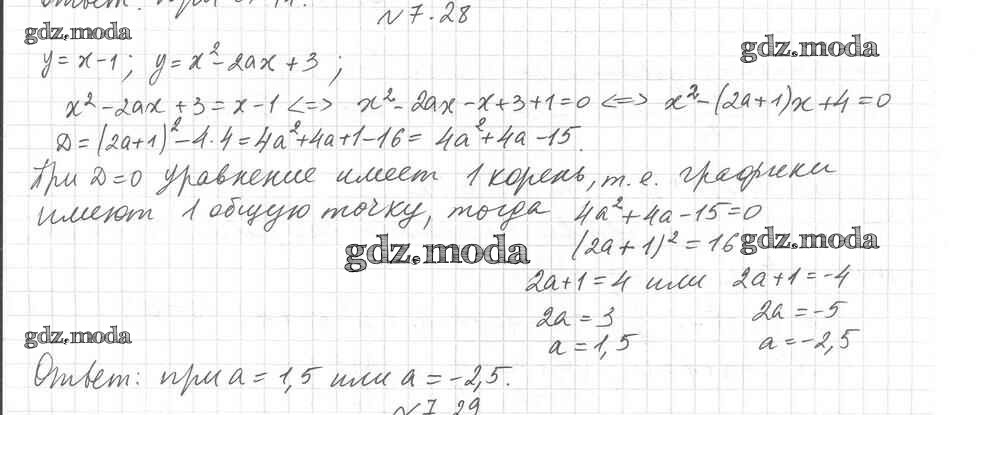 N 7.28
gdz.moda
gdz.moda
y = x - 1; y = x² - 2ax + 3;
x² - 2ax + 3 = x - 1 <=> x² - 2ax - x + 3 + 1 = 0 <=> x² - (2a+1)x + 4 = 0
D = (2a+1)² - 4·4 = 4a² + 4a + 1 - 16 = 4a² + 4a - 15.
При D = 0 уравнение имеет 1 корень, т.е. графики
имеют 1 общую точку, тогда 4a² + 4a - 15 = 0
(2a + 1)² = 16
gdz.moda
gdz.moda
2a + 1 = 4 или 2a + 1 = -4
2a = 3 2a = -5
a = 1,5 a = -2,5
gdz.moda
Ответ: при a = 1,5 или a = -2,5.
N 7.29